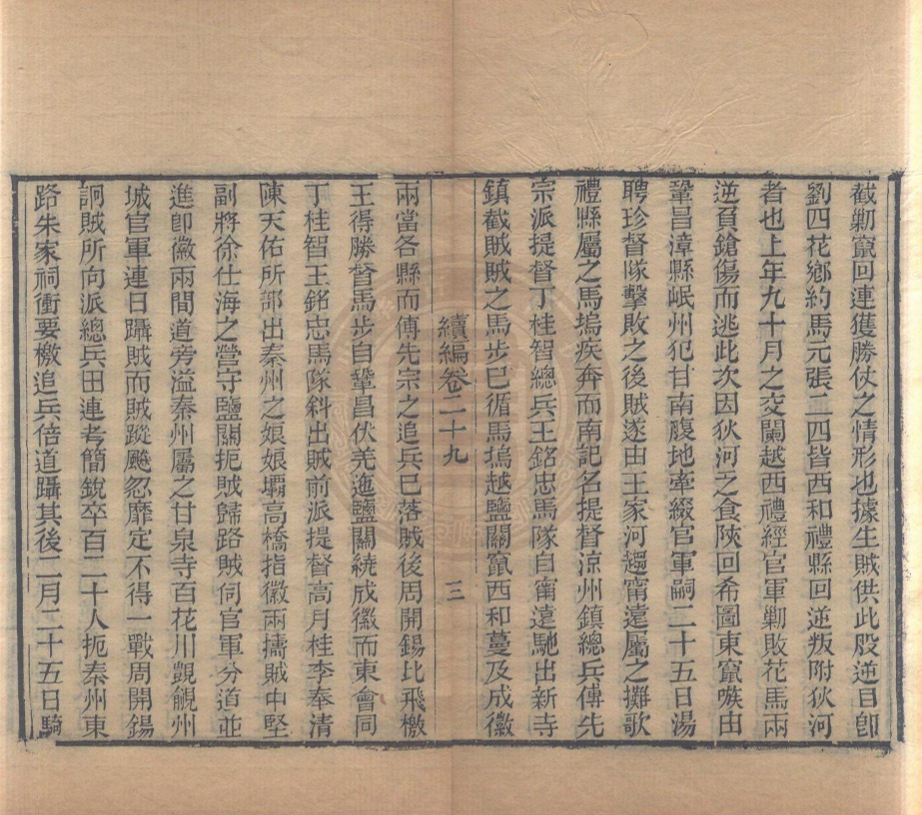 截剿竄回連獲勝仗之情形也據生賊供此股逆目卽
劉四花鄉約馬元張二四皆西和禮縣回逆叛附狄河
者也上年九十月之交闌越西禮經官軍剿敗花馬兩
逆負鎗傷而逃此次因狄河乏食陝回希圖東竄嗾由
鞏昌漳縣岷州犯甘南腹地牽綴官軍嗣二十五日湯
聘珍督隊擊敗之後賊遂由王家河趨甯遠屬之攤歌
禮縣屬之馬塢疾奔而南記名提督涼州鎮總兵傅先
宗派提督丁桂智總兵王銘忠馬隊自甯遠馳出新寺
鎮截賊賊之馬步巳循馬塢越鹽關竄西和蔓及成徽
續編卷二十九
三
兩當各縣而傅先宗之追兵巳落賊後周開錫比飛檄
王得勝督馬步自鞏昌伏羌迤鹽關繞成徽而東會同
丁桂智王銘忠馬隊斜出賊前派提督高月桂李奉清
陳天佑所部出秦州之娘娘壩高橋指徽兩擣賊中堅
副將徐仕海之營守鹽關扼賊歸路賊伺官軍分道並
進卽徽兩間道旁溢秦州屬之甘泉寺百花川覬覦州
城官軍連日躡賊而賊蹤飈忽靡定不得一戰周開錫
詗賊所向派總兵田連考簡銳卒百二十人扼秦州東
路朱家祠衝要檄追兵倍道躡其後二月二十五日騎